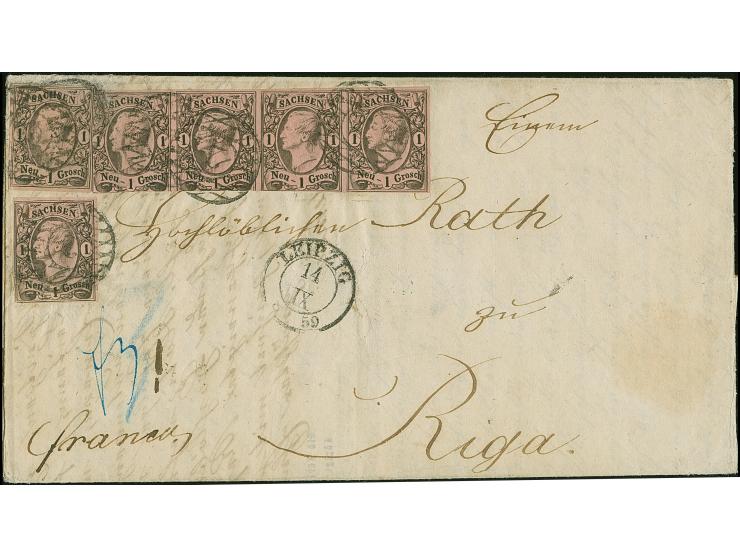 SACHSEN SACHSEN SACHSEN SACHSEN SACHSEN
1 1 1 1 1 1 1 1 1 1
Neu 1 Grosch Neu 1 Grosch Neu 1 Grosch Neu 1 Grosch Neu 1 Grosch
Einem
Hochlöblichen Rath
SACHSEN
1 1
Neu 1 Grosch
LEIPZIG
14
IX
59
zu
Riga.
franco,